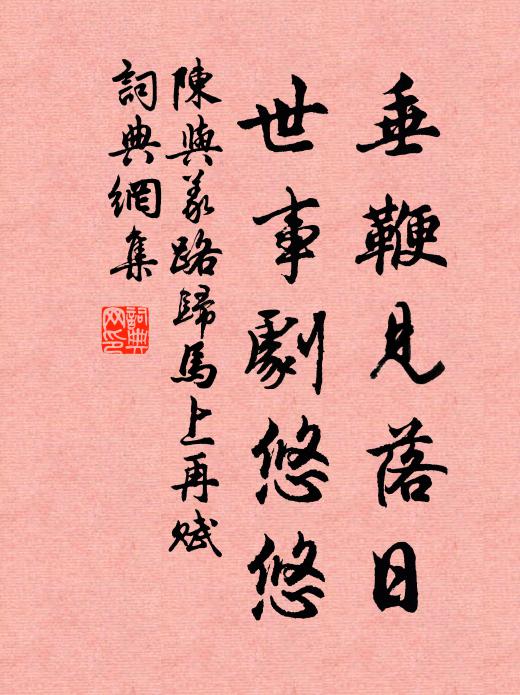 垂鞭見落日
世事劇悠悠
陳與義路歸馬上再賦
詞典網集
詞典网印